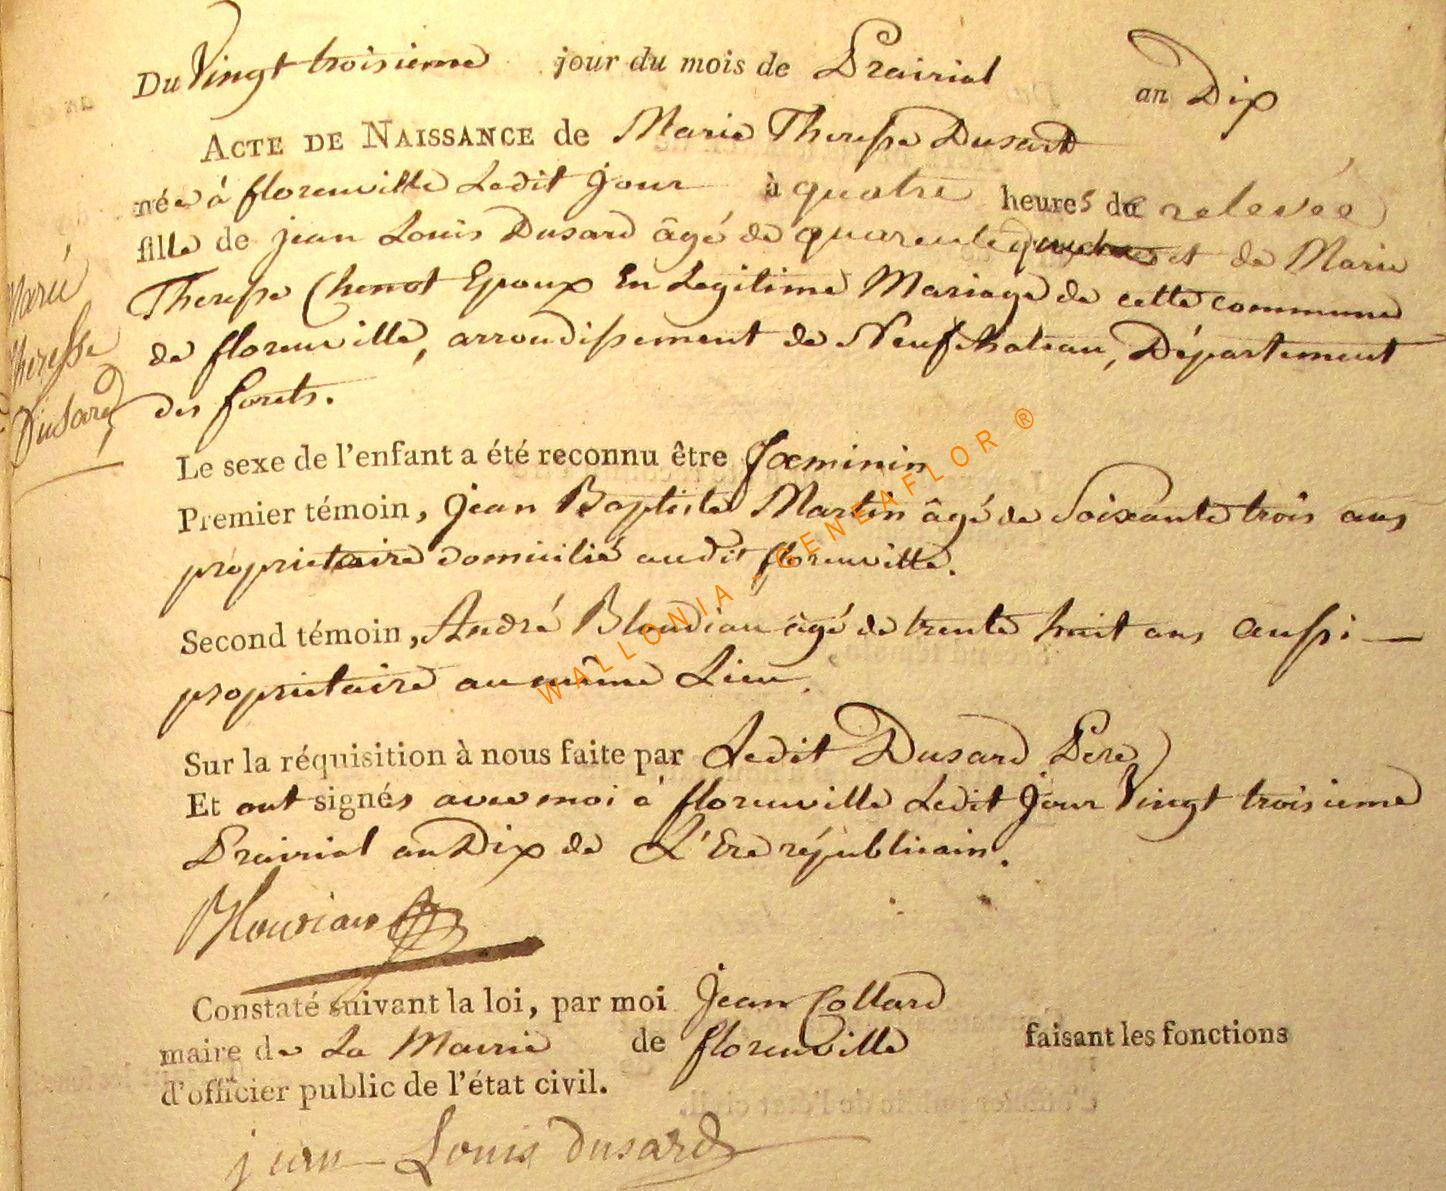 Du Vingt troisieme jour du mois de Prairial an Dix
ACTE DE NAISSANCE de Marie Theresse Dusard
née à florenville Ledit Jour à quatre heures de relevée
fille de jean Louis Dusard âgé de quarente et de Marie
Theresse Chenot Epoux En Legitime Mariage de cette commune
de florenville, arrondissement de Neufchateau, Département
des forets.
Marie
Theresse
Dusard
Le sexe de l'enfant a été reconnu être fœminin
Premier témoin, Jean Baptiste Martin âgé de Soixante trois ans
proprietaire domicilié audit florenville.
Second témoin, André Bloudiau âgé de trente huit ans aussi
proprietaire au même Lieu.
Sur la réquisition à nous faite par Ledit Dusard Pere
Et ont signés avec moi à florenville Ledit Jour Vingt troisieme
Prairial an Dix de L'Ere républicain.
Bloudiau
Constaté suivant la loi, par moi Jean Collard
maire de La Mairie de florenville faisant les fonctions
d'officier public de l'état civil.
jean Louis Dusard
WALLONIA - GENEAFLOR ®